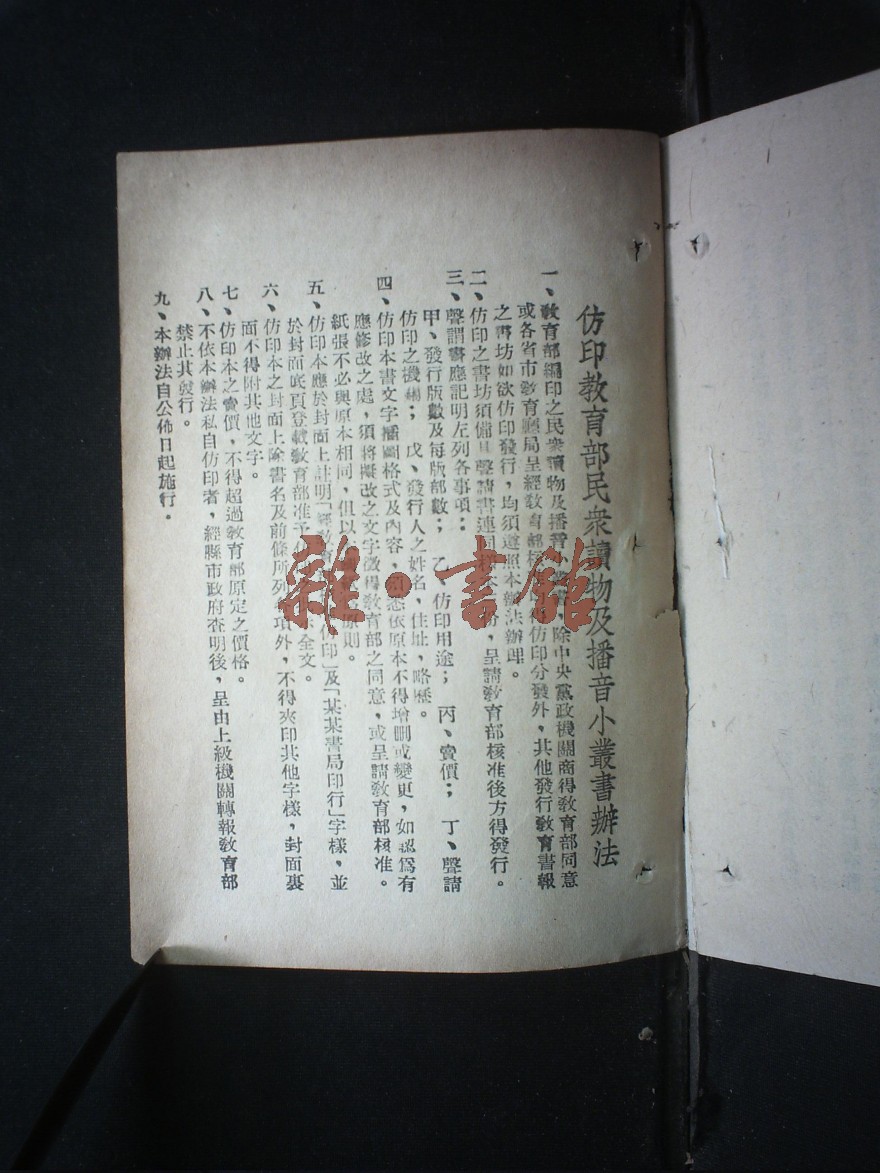 仿印教育部民衆讀物及播音小叢書辦法
一、教育部編印之民衆讀物及播音小叢書，除中央黨政機關商得教育部同意
或各省市教育廳局呈經教育部核准得仿印分發外，其他發行教育書報
之書坊如欲仿印發行，均須遵照本辦法辦理。
二、仿印之書坊須備具聲請書連同，呈請教育部核准後方得發行。
三、聲請書應記明左列各事項：
甲、發行版數及每版部數； 乙、仿印用途； 丙、賣價； 丁、聲請
仿印之機關； 戊、發行人之姓名，住址，略歷。
四、仿印本書文字插圖格式及內容，須悉依原本不得增刪或變更，如認爲有
應修改之處，須將擬改之文字徵得教育部之同意，或呈請教育部核准。
紙張不必與原本相同，但以原則。
五、仿印本應於封面上註明「經教育仿印」及「某某書局印行」字樣，並
於封面底頁登載教育部准予仿全文。
六、仿印本之封面上除書名及前條所列項外，不得夾印其他字樣，封面裏
面不得附其他文字。
七、仿印本之賣價，不得超過教育部原定之價格。
八、不依本辦法私自仿印者，經縣市政府查明後，呈由上級機關轉報教育部
禁止其發行。
九、本辦法自公佈日起施行。
雜·書館